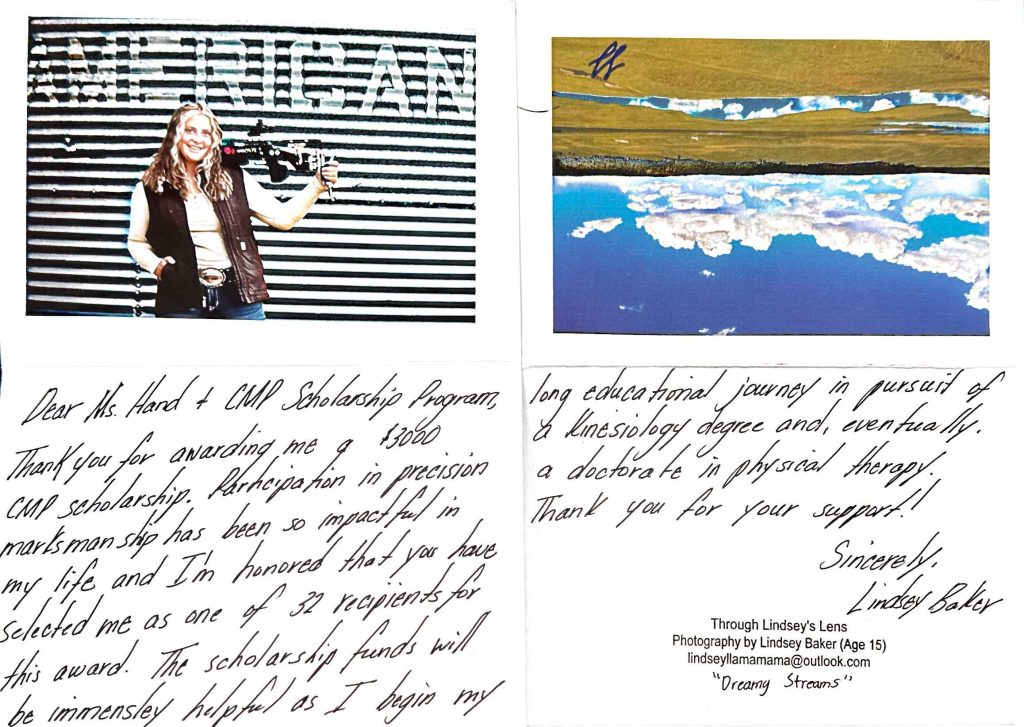 AMERICAN
Dear Ms. Hand + CMP Scholarship Program,
Thank you for awarding me a $3000
CMP scholarship. Participation in precision
marksmanship has been so impactful in
my life and I'm honored that you have
selected me as one of 32 recipients for
this award. The scholarship funds will
be immensley helpful as I begin my
long educational journey in pursuit of
a Kinesiology degree and, eventually,
a doctorate in physical therapy.
Thank you for your support!
Sincerely,
Lindsey Baker
Through Lindsey's Lens
Photography by Lindsey Baker (Age 15)
lindseyllamamama@outlook.com
"Dreamy Streams"